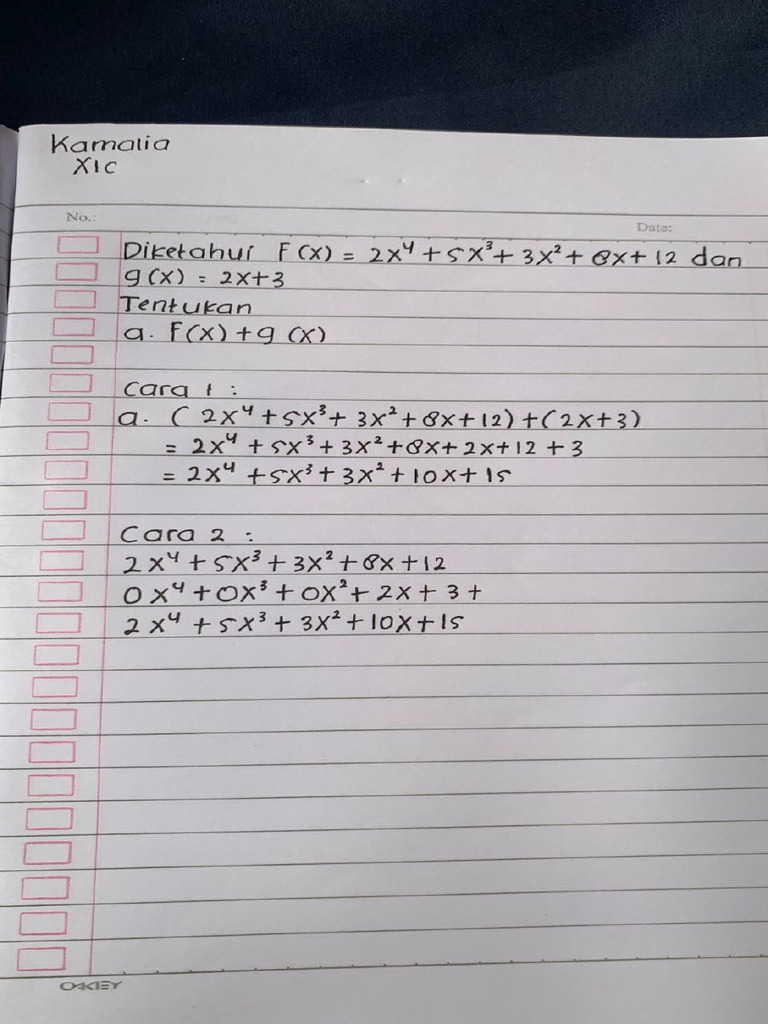 Kamalia
XIC
No.:
Date:
Diketahui F(x) = 2x⁴ + 5x³ + 3x² + 8x + 12 dan
g(x) = 2x+3
Tentukan
a. F(x) + g (x)
Cara 1 :
a. ( 2x⁴ + 5x³ + 3x² + 8x + 12) + (2x+3)
= 2x⁴ + 5x³ + 3x² + 8x + 2x + 12 + 3
= 2x⁴ + 5x³ + 3x² + 10x + 15
Cara 2 :
2x⁴ + 5x³ + 3x² + 8x + 12
0x⁴ + 0x³ + 0x² + 2x + 3 +
2x⁴ + 5x³ + 3x² + 10x + 15
OAKLEY